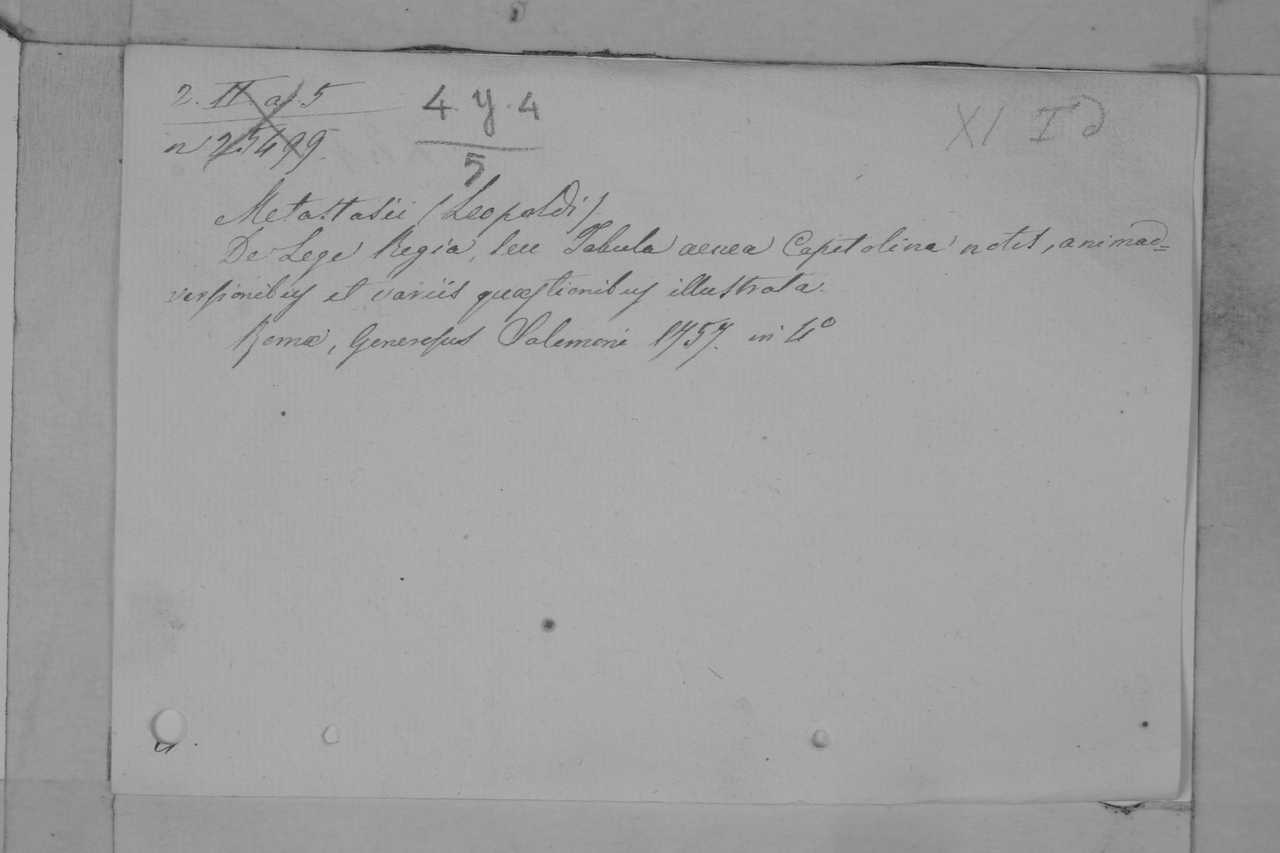 2. II. a. 5
n 25499.
4. y. 4
5
XI I d
Metastasii (Leopoldi)
De Lege Regia, seu Tabula aenea Capitolina notis, animad=
versionibus et variis quæstionibus illustrata.
Romæ, Generosus Salomoni 1757. in 4°